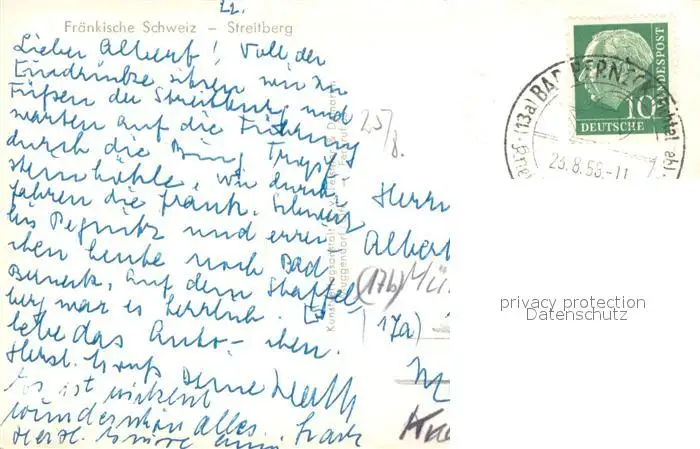 22.
Fränkische Schweiz – Streitberg
Lieber Albert! Voll der
Eindrücke sitzen wir zu
Füßen der Streitburg und
warten auf die Führung
durch die Bing Tropf
steinhöhle, wir durch
fahren die fränk. Schweiz
bis Pegnitz und errei
chen heute noch Bad
Berneck, auf dem Staffel
berg war es herrlich. Es
lebe das Auto-chen.
Herzl. Gruß Deine
Es ist wirklich
wunderschön alles.
Herzl. Grüsse
25/8.
Herrn
Albert
(17b) Mü
(17a)
M
DEUTSCHE BUNDESPOST
10
BAD BERNECK
(13a)
23.8.56.-11
privacy protection
Datenschutz